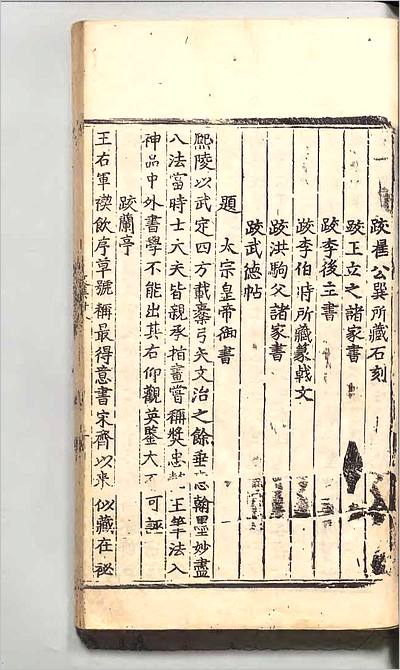 跋翟公巽所藏石刻
跋王立之諸家書
跋李後主書
跋李伯時所藏篆戟文
跋洪駒父諸家書
跋武德帖
題太宗皇帝御書
熙陵以武定四方載櫜弓矢文治之餘垂意翰墨妙盡
八法當時士大夫皆親承指畫嘗稱獎忠 王筆法入
神品中外書學不能出其右仰觀英鑒大 可誣
跋蘭亭
王右軍禊飲序草號稱最得意書宋齊以來似藏在祕